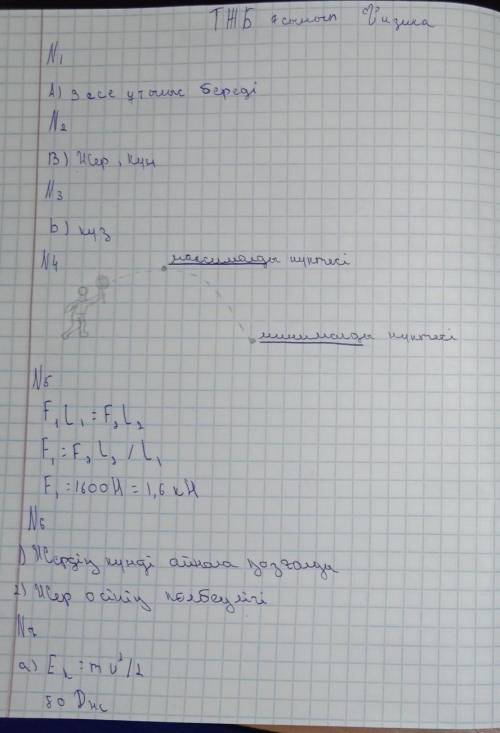 ТЖБ 7 сынып Физика
N1
А) 3 есе ұтыныс береді
N2
В) Жер, күн
N3
b) күз
N4
максималды нүктесі
минималды нүктесі
N5
F₁L₁ = F₂L₂
F₁ = F₂L₂ / L₁
F₁ = 1600Н = 1,6 кН
N6
1) Жердің күнді айнала қозғалуы
2) Жер осінің көлбеулігі
N7
а) Eₖ = mv²/2
80 Дж